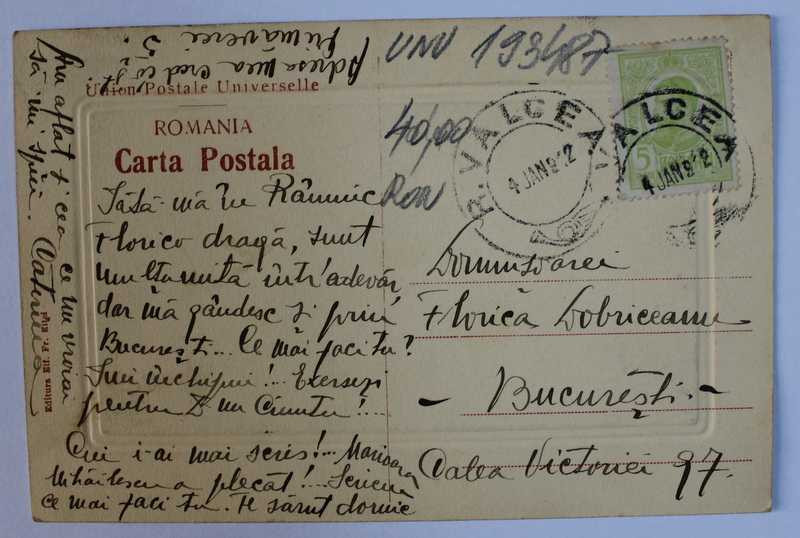 Union Postale Universelle
ROMANIA
Carta Postala
UNV 193487
40,00
RON
R. VALCEA
4 JAN 912
VALCEA
4 JAN 912
5
Iată-mă în Râmnic
Florico dragă, sunt
mulțumită într'adevăr
dar mă gândesc și prin
București... Ce mai faci tu?
Îmi închipui!... Exersezi
pentru
Cui i-ai mai scris!... Marioara
Mihăilescu a plecat!... Scrie-mi
ce mai faci tu. Te sărut dornic
Caterina
Am aflat și cea ce nu vroiai
să-mi spui.
Adresa mea cred că știi
Primăverei 5.
Domnișoarei
Florica Dobriceanu
— București. —
Calea Victoriei 97.
Editura